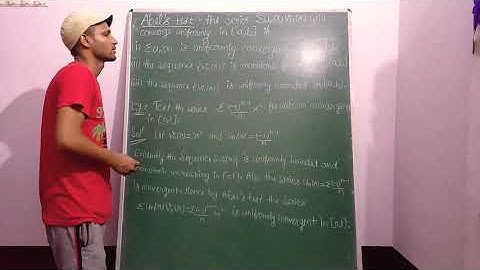 Abel's test - The series Σuₙ(x)vₙ(x) will
converge uniformly in [a,b] if
(i) Σuₙ(x) is uniformly convergent in
(ii) the sequence {vₙ(x)} is monotonic for
(iii) the sequence {vₙ(x)} is uniformly bounded in [a,b].
Test the series Σ (-1)ⁿ⁻¹/n xⁿ for uniform convergence
in [0,1].
Solⁿ Let vₙ(x) = xⁿ and uₙ(x) = (-1)ⁿ⁻¹/n
Evidently the sequence is uniformly bounded and
monotonic in [0,1]. Also the series Σuₙ(x) = Σ(-1)ⁿ⁻¹/n
is convergent. Hence by Abel's test the series
Σuₙ(x)vₙ(x) = Σ(-1)ⁿ⁻¹/n xⁿ is uniformly convergent in [0,1].